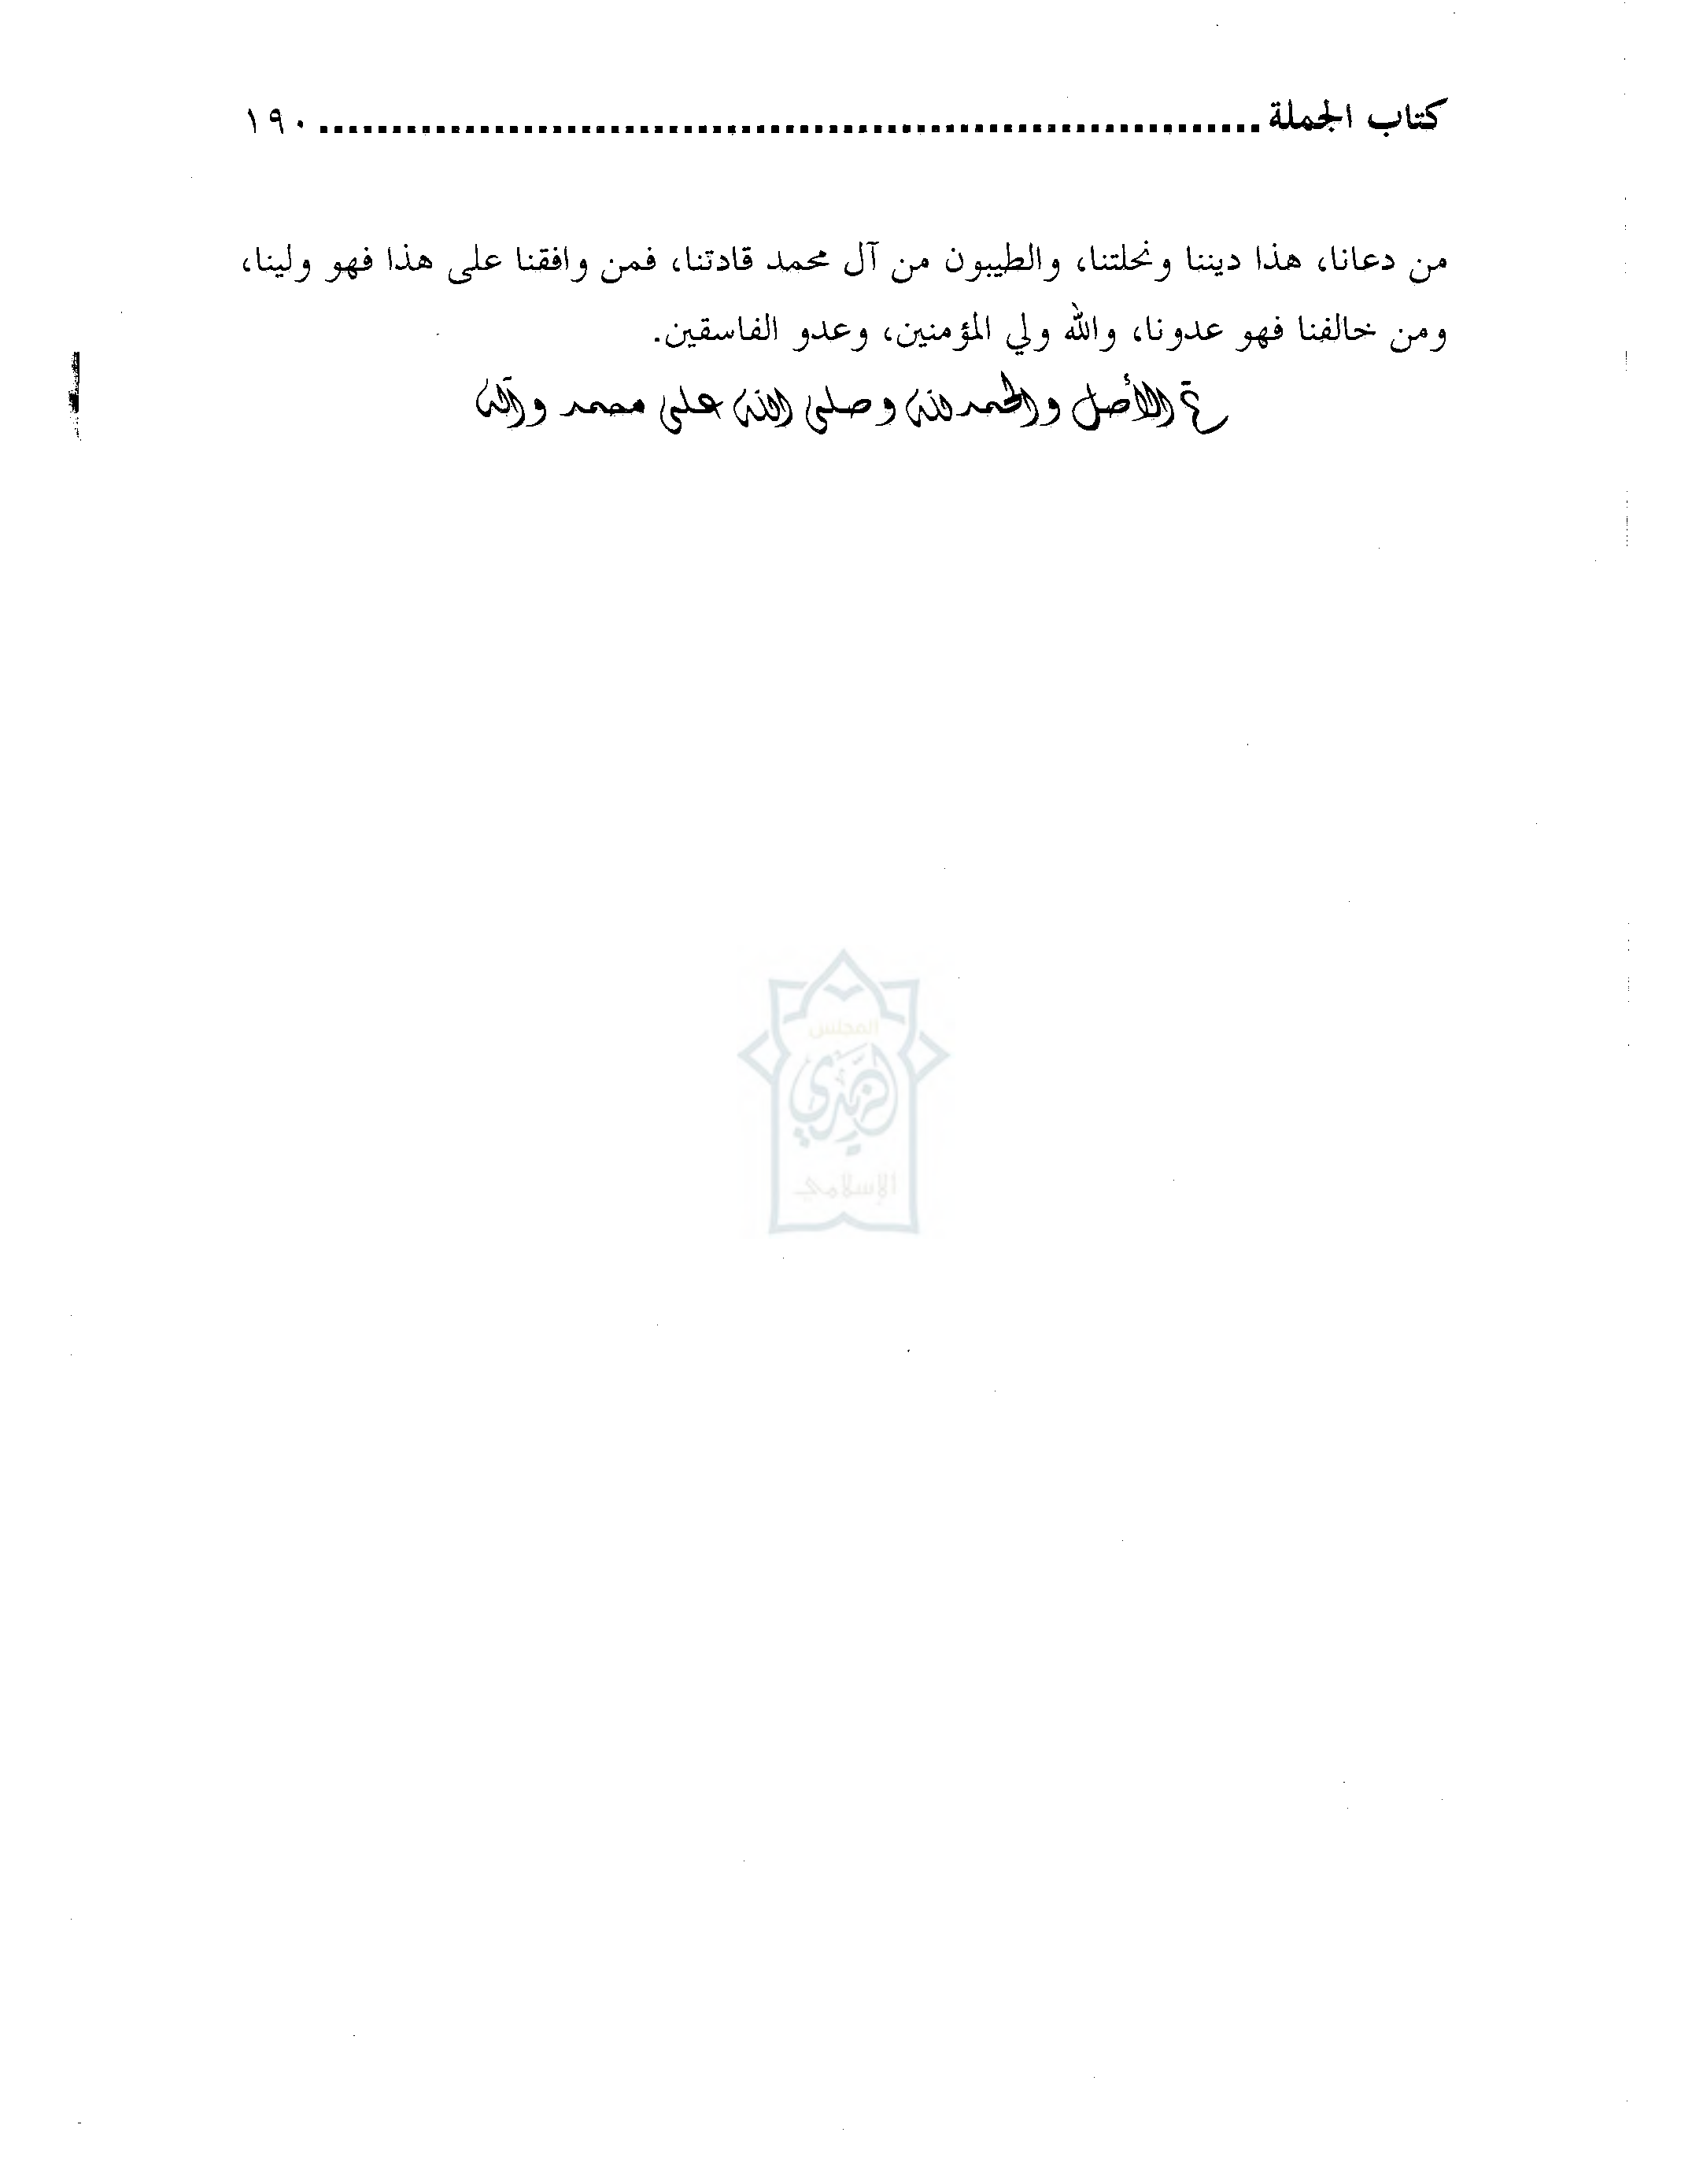 كتاب الجملة ................................................................ ١٩٠
من دعانا، هذا ديننا ونحلتنا، والطيبون من آل محمد قادتنا، فمن وافقنا على هذا فهو ولينا،
ومن خالفنا فهو عدونا، والله ولي المؤمنين، وعدو الفاسقين.
الأصل والحمد لله وصلى الله على محمد وآله
المجلس
الزيدي
الإسلامي